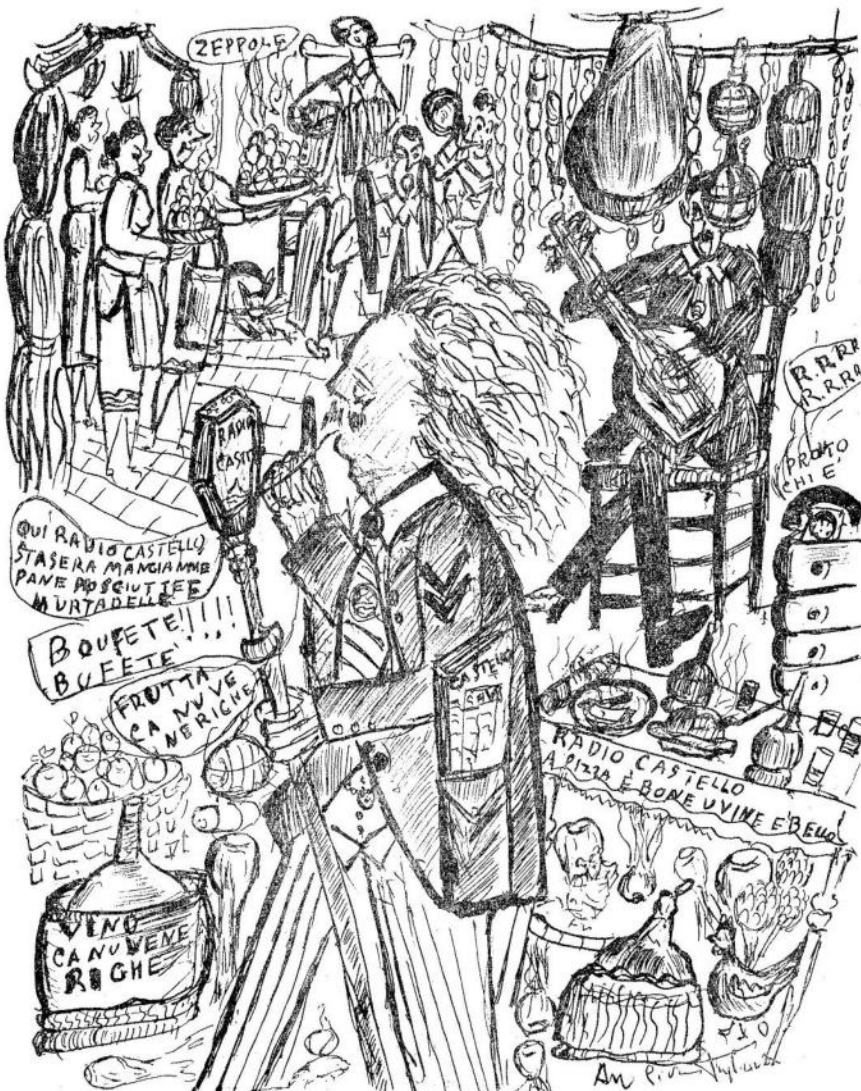 ZEPPOLE
RADIO
CASTE
R.R.RR
R.R.RA
PRONTO
CHI E'
QUI RADIO CASTELLO
STASERA MANGIAMME
PANE PROSCIUTTE E
MURTADELLE
BOUFETE'!!!!
BUFETE'
FRUTTA
CA NUVE
NERICHE
CASTELLO
RADIO CASTELLO
A PIZZA È BONE U VINE E BELLO
VINO
CA NU VENE
RIGHE